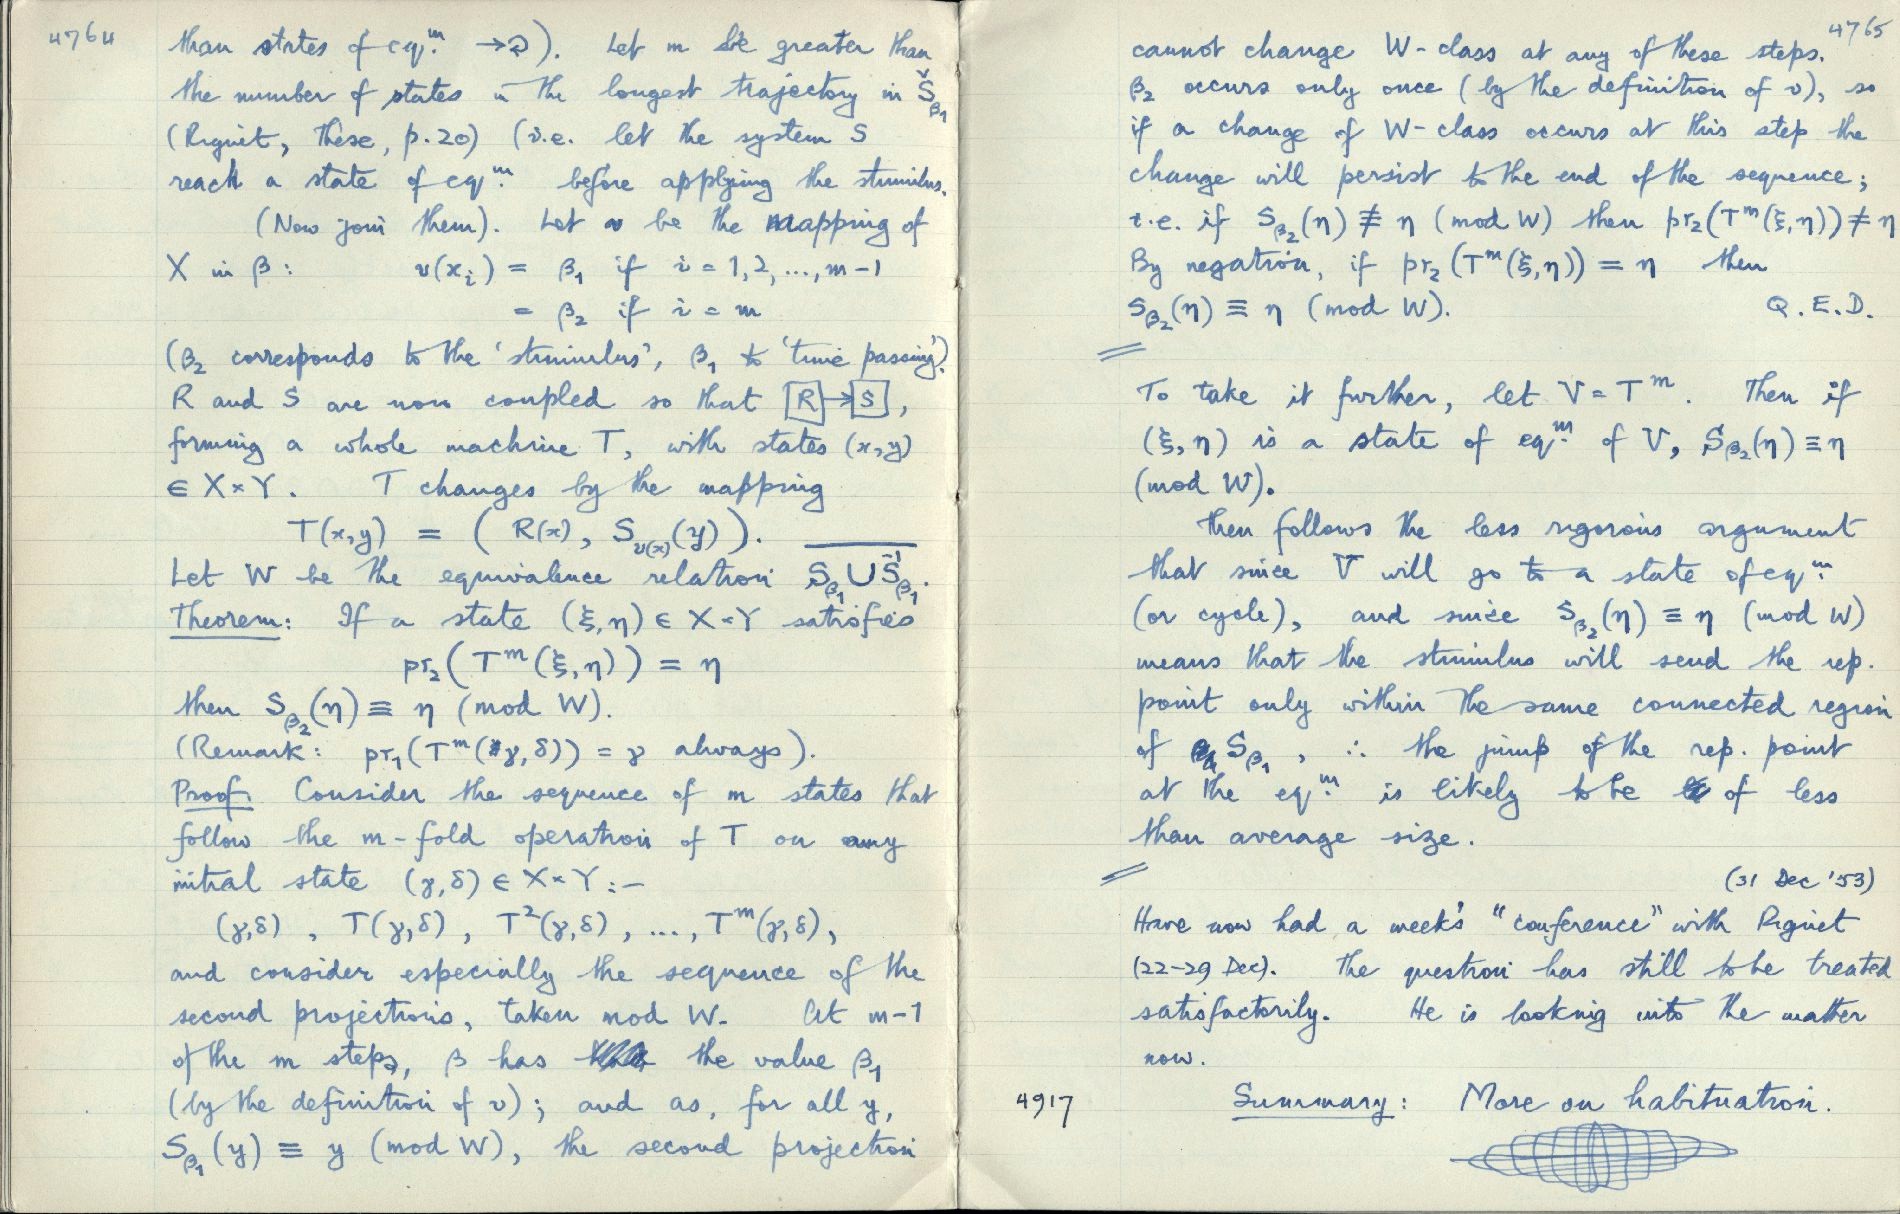 4764
than states of eqm. →⊋). Let m be greater than
the number of states in the longest trajectory in Šβ₁
(Riguet, These, p.20) (i.e. let the system S
reach a state of eqm. before applying the stimulus.
(Now join them). Let v be the mapping of
X in β: v(xᵢ) = β₁ if i = 1,2, ..., m-1
= β₂ if i = m
(β₂ corresponds to the 'stimulus', β₁ to 'time passing').
R and S are now coupled so that [R]→[S],
forming a whole machine T, with states (x,y)
∈ X×Y. T changes by the mapping
T(x,y) = ( R(x), S_v(x)(y) ).
Let W be the equivalence relation S̅β₁ ∪ S̅⁻¹β₁.
Theorem: If a state (ξ,η) ∈ X×Y satisfies
pr₂(Tᵐ(ξ,η)) = η
then Sβ₂(η) ≡ η (mod W).
(Remark: pr₁(Tᵐ(γ,δ)) = γ always).
Proof: Consider the sequence of m states that
follow the m-fold operation of T on any
initial state (γ,δ) ∈ X×Y:-
(γ,δ), T(γ,δ), T²(γ,δ), ..., Tᵐ(γ,δ),
and consider especially the sequence of the
second projections, taken mod W. At m-1
of the m steps, β has the value β₁
(by the definition of v); and as, for all y,
Sβ₁(y) ≡ y (mod W), the second projection
4765
cannot change W-class at any of these steps.
β₂ occurs only once (by the definition of v), so
if a change of W-class occurs at this step the
change will persist to the end of the sequence;
i.e. if Sβ₂(η) ≢ η (mod W) then pr₂(Tᵐ(ξ,η)) ≠ η
By negation, if pr₂(Tᵐ(ξ,η)) = η then
Sβ₂(η) ≡ η (mod W). Q.E.D.
To take it further, let V = Tᵐ. Then if
(ξ,η) is a state of eqm. of V, Sβ₂(η) ≡ η
(mod W).
Then follows the less rigorous argument
that since V will go to a state of eqm.
(or cycle), and since Sβ₂(η) ≡ η (mod W)
means that the stimulus will send the rep.
point only within the same connected region
of Sβ₁, ∴ the jump of the rep. point
at the eqm. is likely to be of less
than average size.
(31 Dec '53)
Have now had a week's "conference" with Riguet
(22-29 Dec). The question has still to be treated
satisfactorily. He is looking into the matter
now.
4917 Summary: More on habituation.